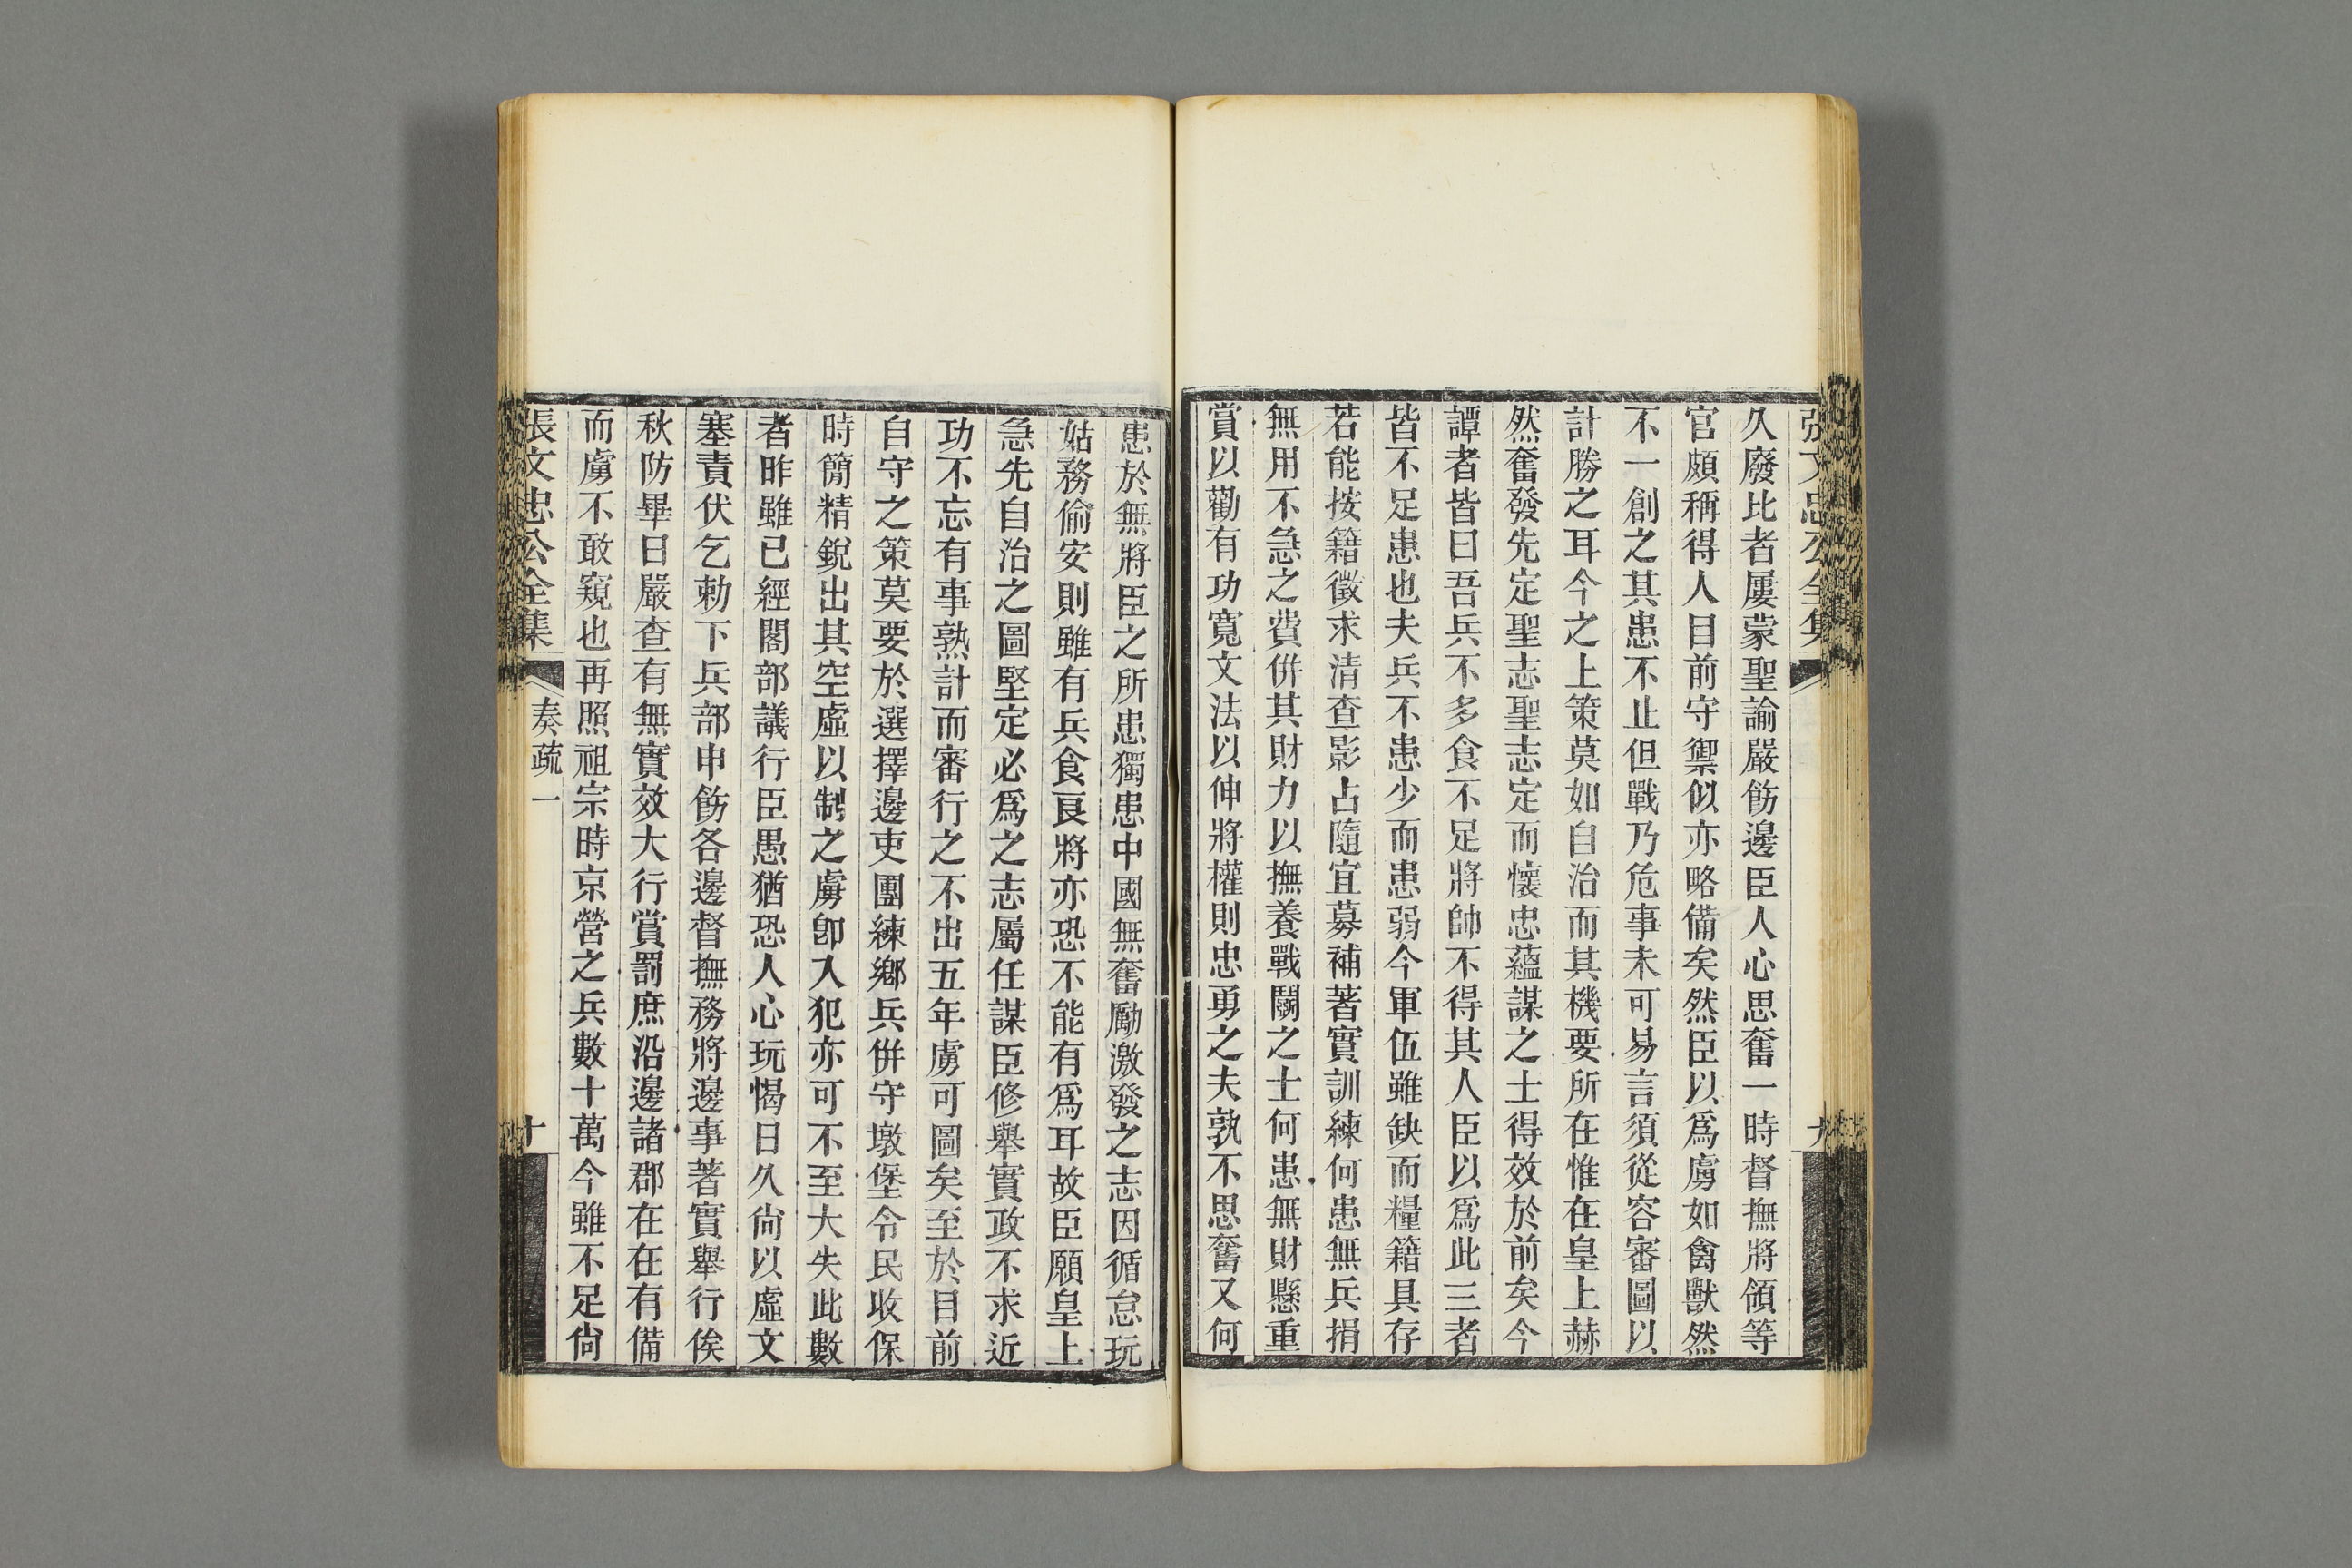 張文忠公全集
久廢比者屢蒙聖諭嚴飭邊臣人心思奮一時督撫將領等
官頗稱得人目前守禦似亦略備矣然臣以爲虜如禽獸然
不一創之其患不止但戰乃危事未可易言須從容審圖以
計勝之耳今之上策莫如自治而其機要所在惟在皇上赫
然奮發先定聖志聖志定而懷忠蘊謀之士得效於前矣今
譚者皆曰吾兵不多食不足將帥不得其人臣以爲此三者
皆不足患也夫兵不患少而患弱今軍伍雖缺而糧籍具存
若能按籍徵求清查影占隨宜募補著實訓練何患無兵捐
無用不急之費併其財力以撫養戰鬭之士何患無財懸重
賞以勸有功寬文法以伸將權則忠勇之夫孰不思奮又何
患於無將臣之所患獨患中國無奮勵激發之志因循怠玩
姑務偷安則雖有兵食良將亦恐不能有爲耳故臣願皇上
急先自治之圖堅定必爲之志屬任謀臣修舉實政不求近
功不忘有事熟計而審行之不出五年虜可圖矣至於目前
自守之策莫要於選擇邊吏團練鄉兵併守墩堡令民收保
時簡精銳出其空虛以制之虜卽入犯亦可不至大失此數
者昨雖已經閣部議行臣愚猶恐人心玩愒日久尙以虛文
塞責伏乞勅下兵部申飭各邊督撫務將邊事著實舉行俟
秋防畢日嚴查有無實效大行賞罰庶沿邊諸郡在在有備
而虜不敢窺也再照祖宗時京營之兵數十萬今雖不足尙
張文忠公全集 奏疏一 十